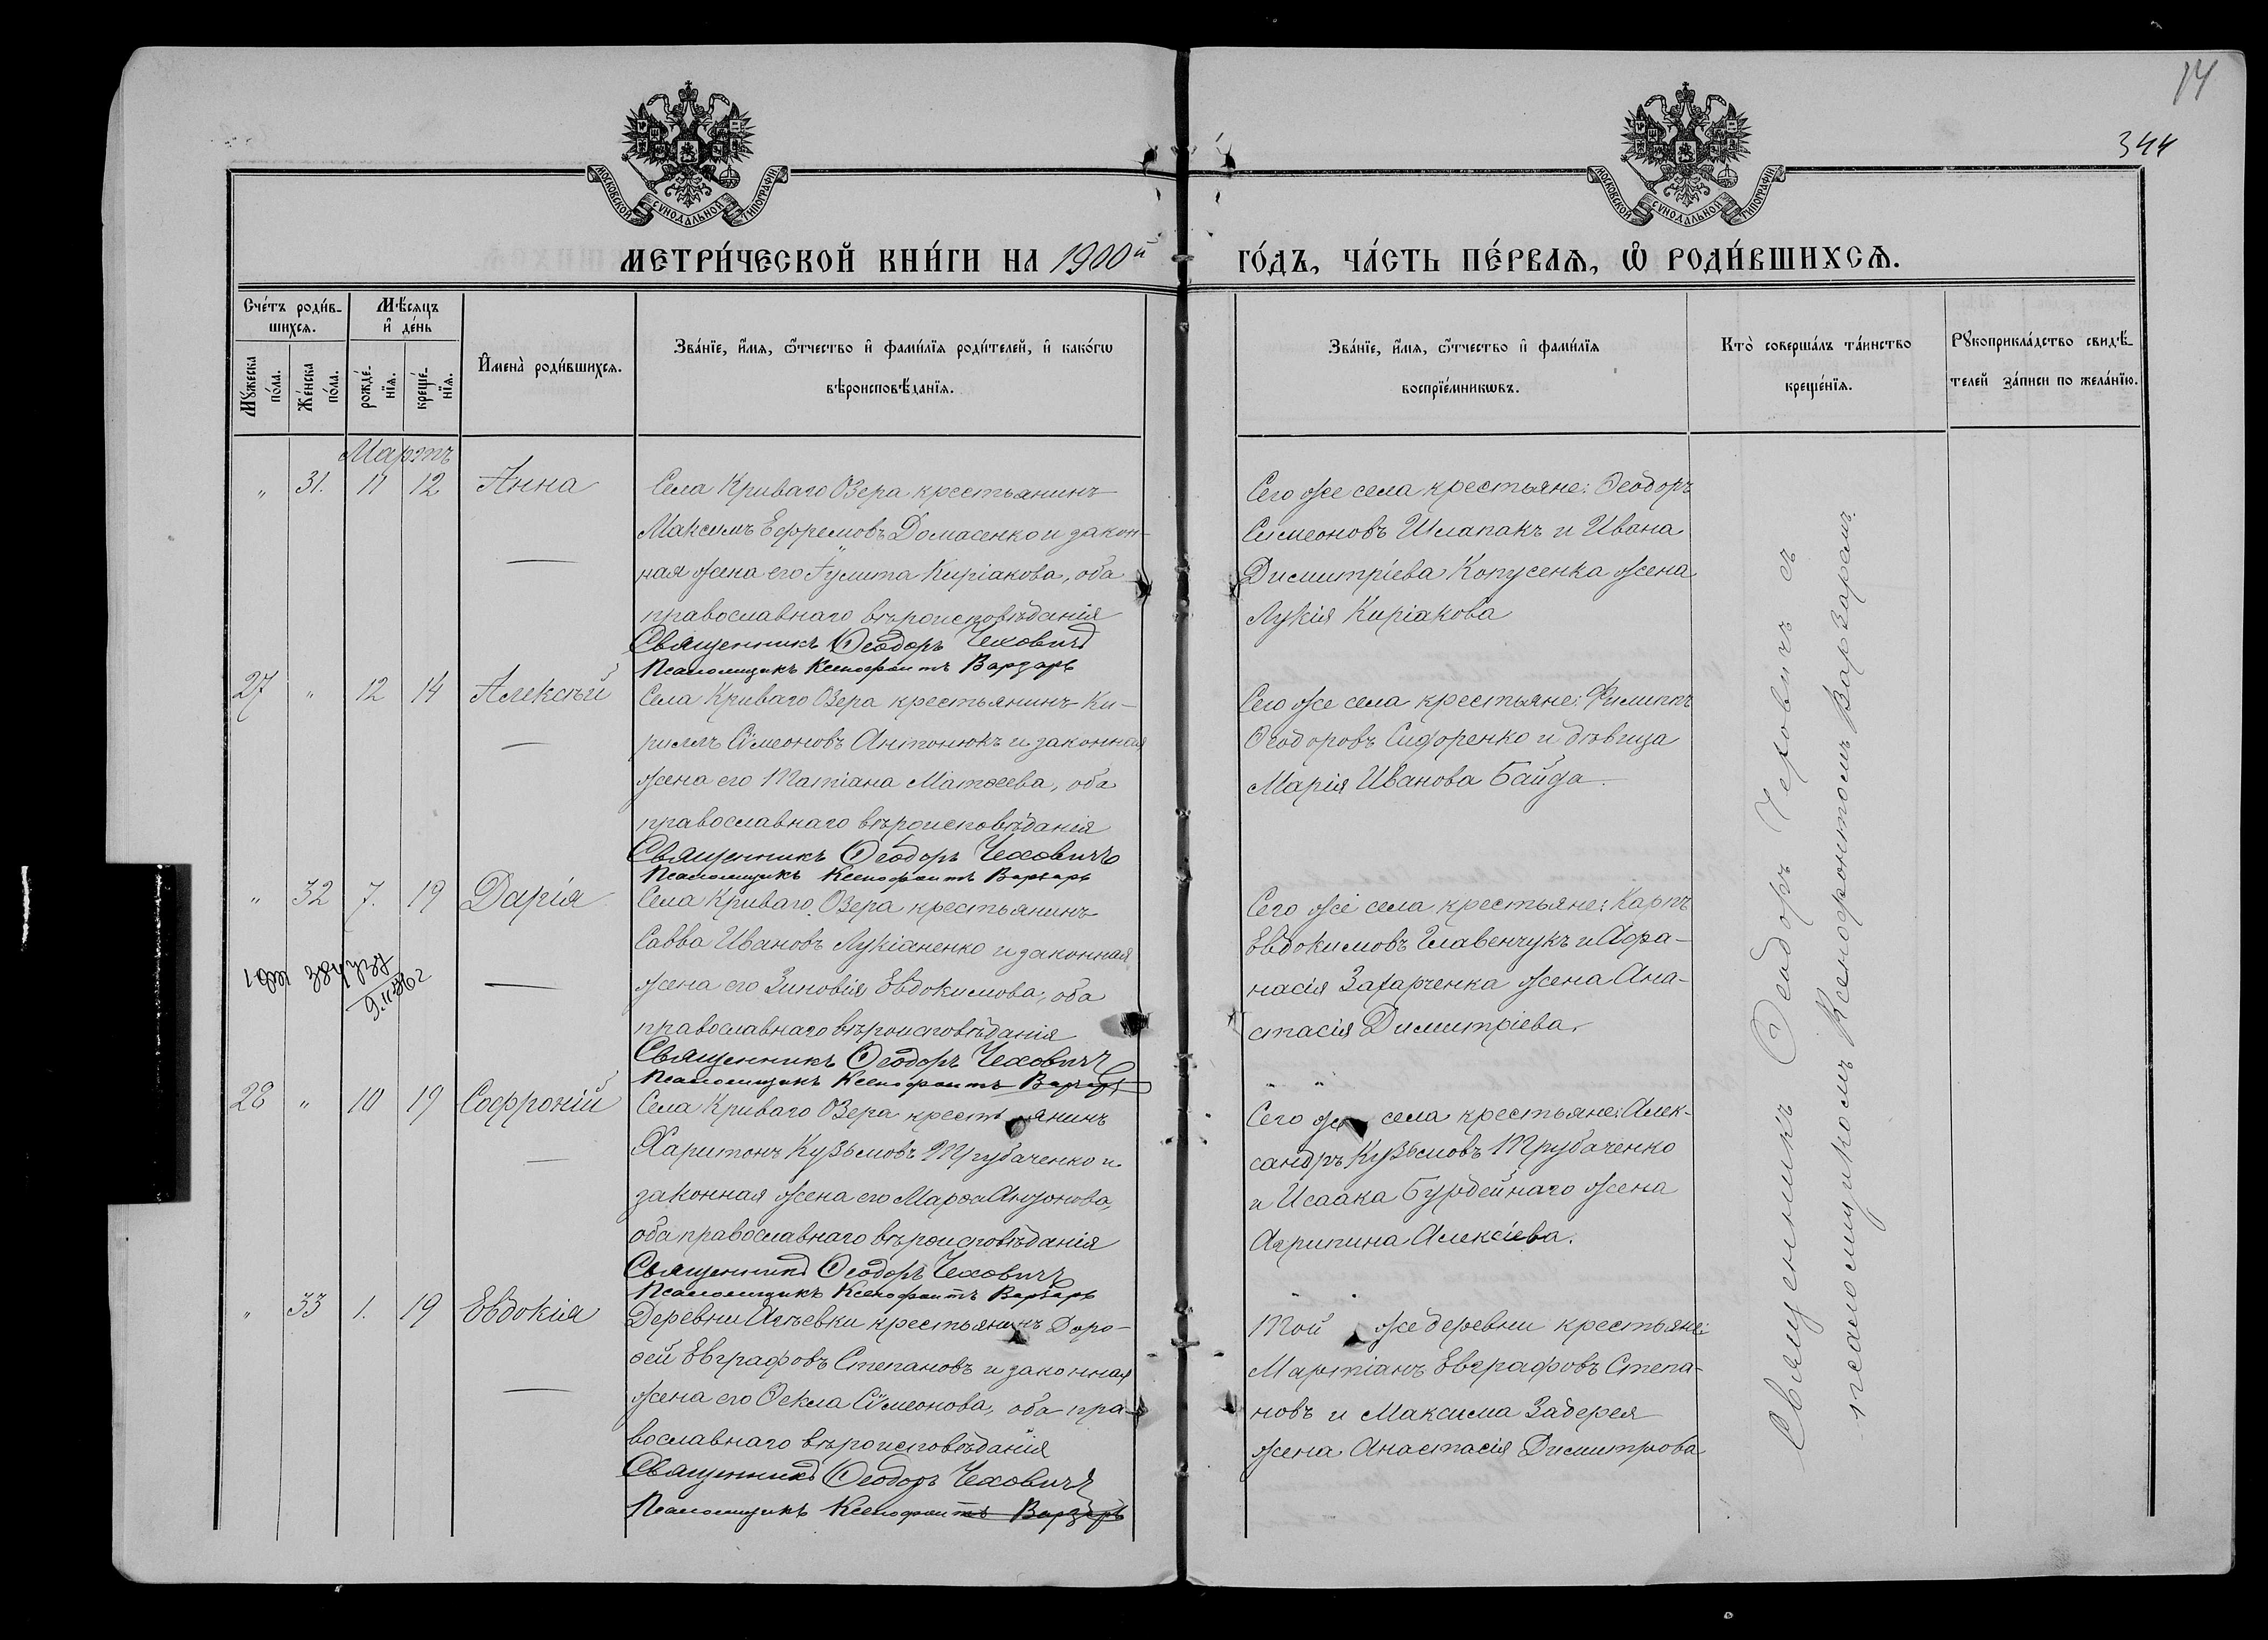 14
344
МОСКОВСКОЙ СѴНОДАЛЬНОЙ ТИПОГРАФІИ
МОСКОВСКОЙ СѴНОДАЛЬНОЙ ТИПОГРАФІИ
МЕТРИ́ЧЕСКОЙ КНИ́ГИ НА 1900й ГО́ДЪ, ЧА́СТЬ ПЕ́РВАѦ, Ѡ РОДИ́ВШИХСѦ.
Сче́тъ роди́в-
шихсѧ.
Мѣ́сѧцъ
и҆ де́нь
Мꙋ́жеска по́ла.
Же́нска по́ла.
рожде́-нїѧ.
креще́-нїѧ.
И҆мена̀ роди́вшихсѧ.
Зва́нїе, и҆́мѧ, ѻ҆́тчество и҆ фами́лїѧ роди́телей, и҆ како́гѡ
вѣроисповѣ́данїѧ.
Зва́нїе, и҆́мѧ, ѻ҆́тчество и҆ фами́лїѧ
воспрїе́мникѡвъ.
Кто̀ соверша́лъ та́инство
креще́нїѧ.
Рꙋкоприкла́дство свидѣ́-
телей за́писи по жела́нїю.
Мартъ
" 31. 11 12 Анна
Села Криваго Озера крестьянинъ
Максимъ Ефремовъ Домасенко и закон-
ная жена его Іулита Киріакова, оба
православнаго вѣроисповѣданія
Священникъ Ѳеодоръ Чеховичъ
Псаломщикъ Ксенофонтъ Варзарь
Сего же села крестьяне: Ѳеодоръ
Симеоновъ Шлапакъ и Ивана
Димитріева Копусенка жена
Лукія Киріакова
27 " 12 14 Алексѣй
Села Криваго Озера крестьянинъ Ки-
риллъ Сѵмеоновъ Антонюкъ и законная
жена его Татіана Матѳеева, оба
православнаго вѣроисповѣданія
Священникъ Ѳеодоръ Чеховичъ
Псаломщикъ Ксенофонтъ Варзарь
Сего же села крестьяне: Филиппъ
Ѳеодоровъ Сидоренко и дѣвица
Марія Иванова Байда
" 32 7. 19 Дарія
Села Криваго Озера крестьянинъ
Савва Ивановъ Лукіаненко и законная
жена его Зиновія Евдокимова, оба
православнаго вѣроисповѣданія
Священникъ Ѳеодоръ Чеховичъ
Псаломщикъ Ксенофонтъ Варзарь
Сего же села крестьяне: Карпъ
Евдокимовъ Главенчукъ и Аѳа-
насія Захарченка жена Ана-
стасія Димитріева.
28 " 10 19 Софроній
Села Криваго Озера крестьянинъ
Харитонъ Кузьмовъ Трубаченко и
законная жена его Марѳа Антонова,
оба православнаго вѣроисповѣданія
Священникъ Ѳеодоръ Чеховичъ
Псаломщикъ Ксенофонтъ Варзарь
Сего же села крестьяне: Алек-
сандръ Кузьмовъ Трубаченко
и Исаака Бурдейнаго жена
Агрипина Алексіева.
" 33 1. 19 Евдокія
Деревни Агѣевки крестьянинъ Доро-
ѳей Евграфовъ Степановъ и законная
жена его Ѳекла Сѵмеонова, оба пра-
вославнаго вѣроисповѣданія
Священникъ Ѳеодоръ Чеховичъ
Псаломщикъ Ксенофонтъ Варзарь
Той же деревни крестьяне:
Мартіанъ Евграфовъ Степа-
новъ и Максима Задерея
жена Анастасія Димитрова
Священникъ Ѳеодоръ Чеховичъ съ
псаломщикомъ Ксенофонтомъ Варзаремъ.